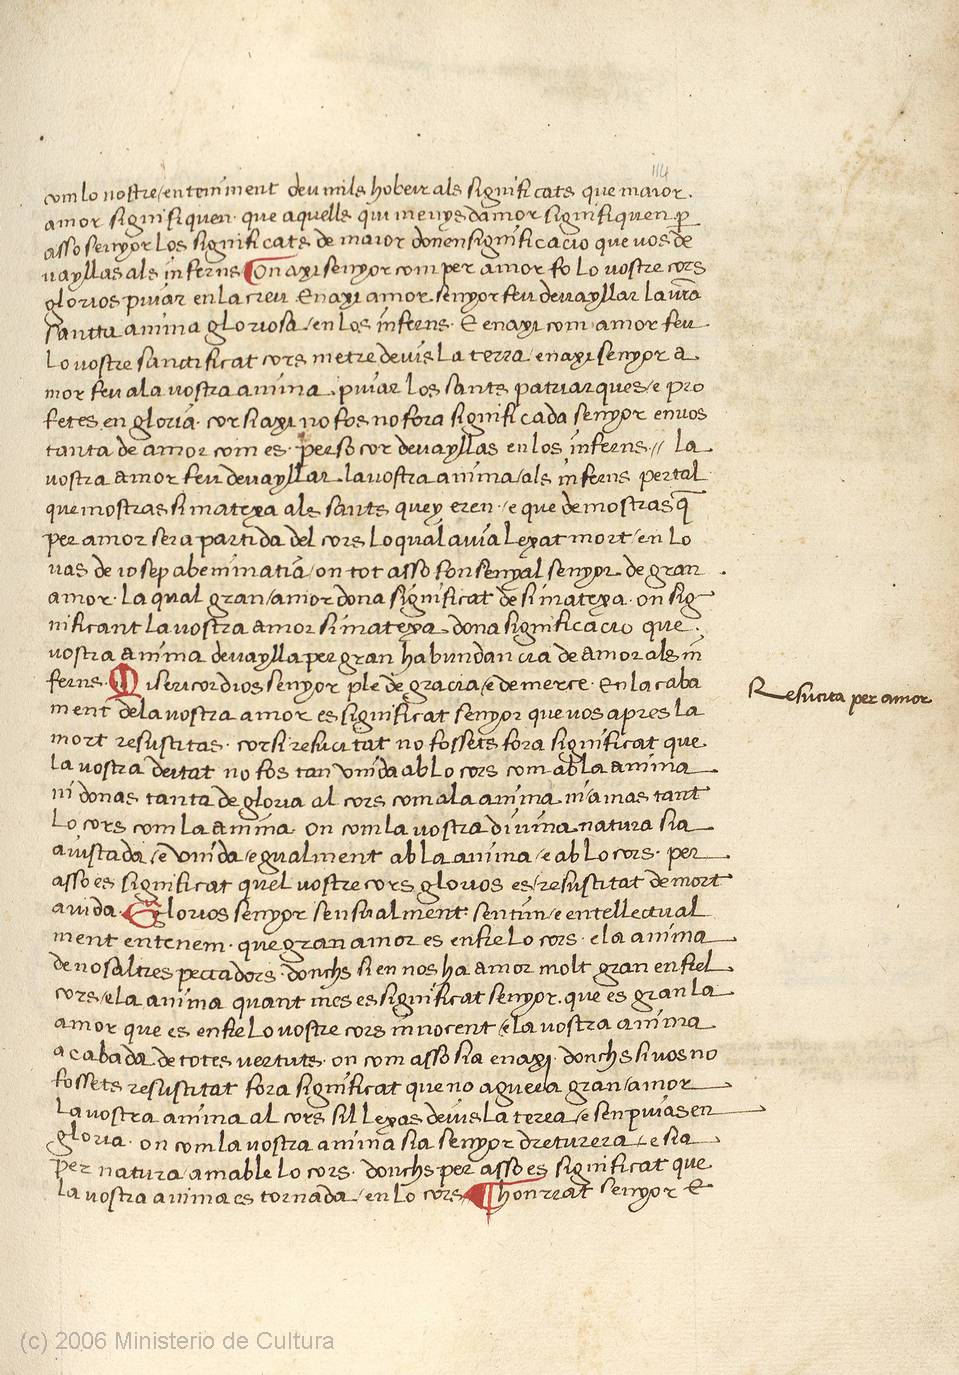 114
com lo nostre / enteniment devm mils hobeir als significats que maior.
amor signifiquen · que aquells qui menys damor signifiquen p
asso senyor los significats de maior donen significacio que vos de
vayllas als inferns On axi senyor com per amor fo lo vostre cors
glorios puiar en la creu · En axi amor senyor feu devayllar la vra
sancta anima gloriosa / en los inferns · E en axi com amor feu
lo vostre sanctificat cors metre devis la terra / en axi senyor a
mor feu a la vostra anima · puiar los sants patriarques / e pro
fetes en gloria · cor si axi no fos no fora significada senyor en vos
tanta de amor com es · per so cor devayllas en los inferns // la
vostra amor feu devayllar la vostra anima / als inferns per tal
que mostras si matexa als sants quey eren · e que demostras q
per amor sera partida del cors lo qual avia lexat mort / en lo
vas de iosep ab eminatia / on tot asso fon senyal senyor de gran
amor · la qual gran / amor dona significat de si matexa · on sig
nificant la vostra amor si matexa dona significacio que
vostra anima devaylla per gran habundancia de amor als in
ferns · Misericordios senyor ple de gracia / e de merce · En lacaba
ment de la vostra amor es significat senyor que vos apres la
mort resustitas · cor si resucitat no fossets fora significat que
la vostra deitat no fos tan vnida ab lo cors com ab la anima
ni donas tanta de gloria al cors com a la anima ni amas tant
lo cors com la anima · on com la vostra divina natura sia
aiustada / e vnida / egualment ab la anima / e ab lo cors · per
asso es significat quel vostre cors glorios es / resustitat de mort
a vida · Glorios senyor sensualment sentim / e entellectual
ment entenem · que gran amor es enfre lo cors · e la anima
de nosaltres peccadors · donchs si en nos ha amor molt gran enfrel
cors / e la anima quant mes es significat senyor · que es gran la
amor que es enfre lo vostre cors innocent / e la vostra anima
acabada de totes vertuts · on com asso sia en axi · donchs si vos no
fossets resustitat fora significat que no aguera gran / amor
la vostra anima al cors sil lexas devis la terra / e sen puias en
gloria · on com la vostra anima sia senyor dreturera / e sia
per natura / amable lo cors · donchs per asso es significat que
la vostra anima es tornada / en lo cors honrrat senyor E
Resucita per amor
(c) 2006 Ministerio de Cultura